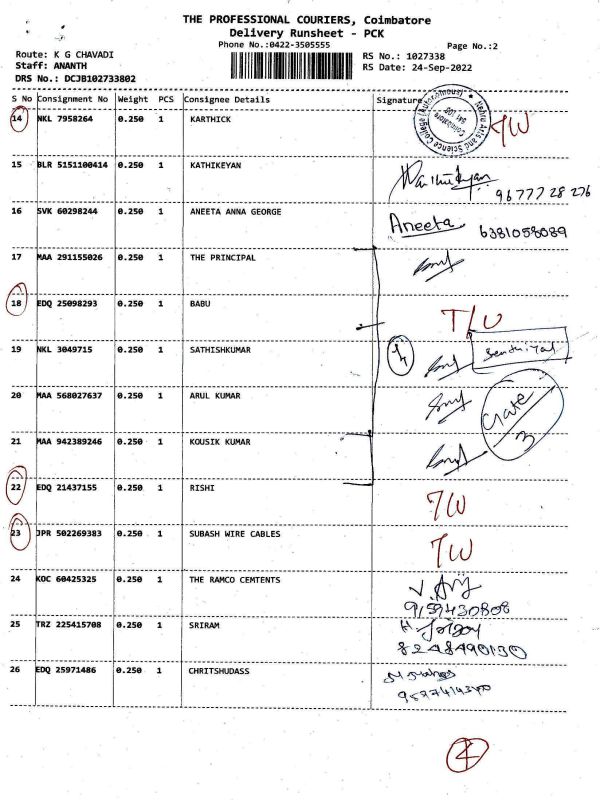 THE PROFESSIONAL COURIERS, Coimbatore
Delivery Runsheet - PCK
Phone No.:0422-3505555
Page No.:2
Route: K G CHAVADI
Staff: ANANTH
DRS No.: DCJB102733802
RS No.: 1027338
RS Date: 24-Sep-2022
S No Consignment No Weight PCS Consignee Details Signature
14 NKL 7958264 0.250 1 KARTHICK
Nehru Arts and Science College (Autonomous)
Coimbatore
15 BLR 5151100414 0.250 1 KATHIKEYAN
9677728276
16 SVK 60298244 0.250 1 ANEETA ANNA GEORGE Aneeta 6381058089
17 MAA 291155026 0.250 1 THE PRINCIPAL
18 EDQ 25098293 0.250 1 BABU T/U
19 NKL 3049715 0.250 1 SATHISHKUMAR
20 MAA 568027637 0.250 1 ARUL KUMAR
Gate
3
21 MAA 942389246 0.250 1 KOUSIK KUMAR
22 EDQ 21437155 0.250 1 RISHI
23 JPR 502269383 0.250 1 SUBASH WIRE CABLES
24 KOC 60425325 0.250 1 THE RAMCO CEMTENTS
9159430808
25 TRZ 225415708 0.250 1 SRIRAM
8248490130
26 EDQ 25971486 0.250 1 CHRITSHUDASS